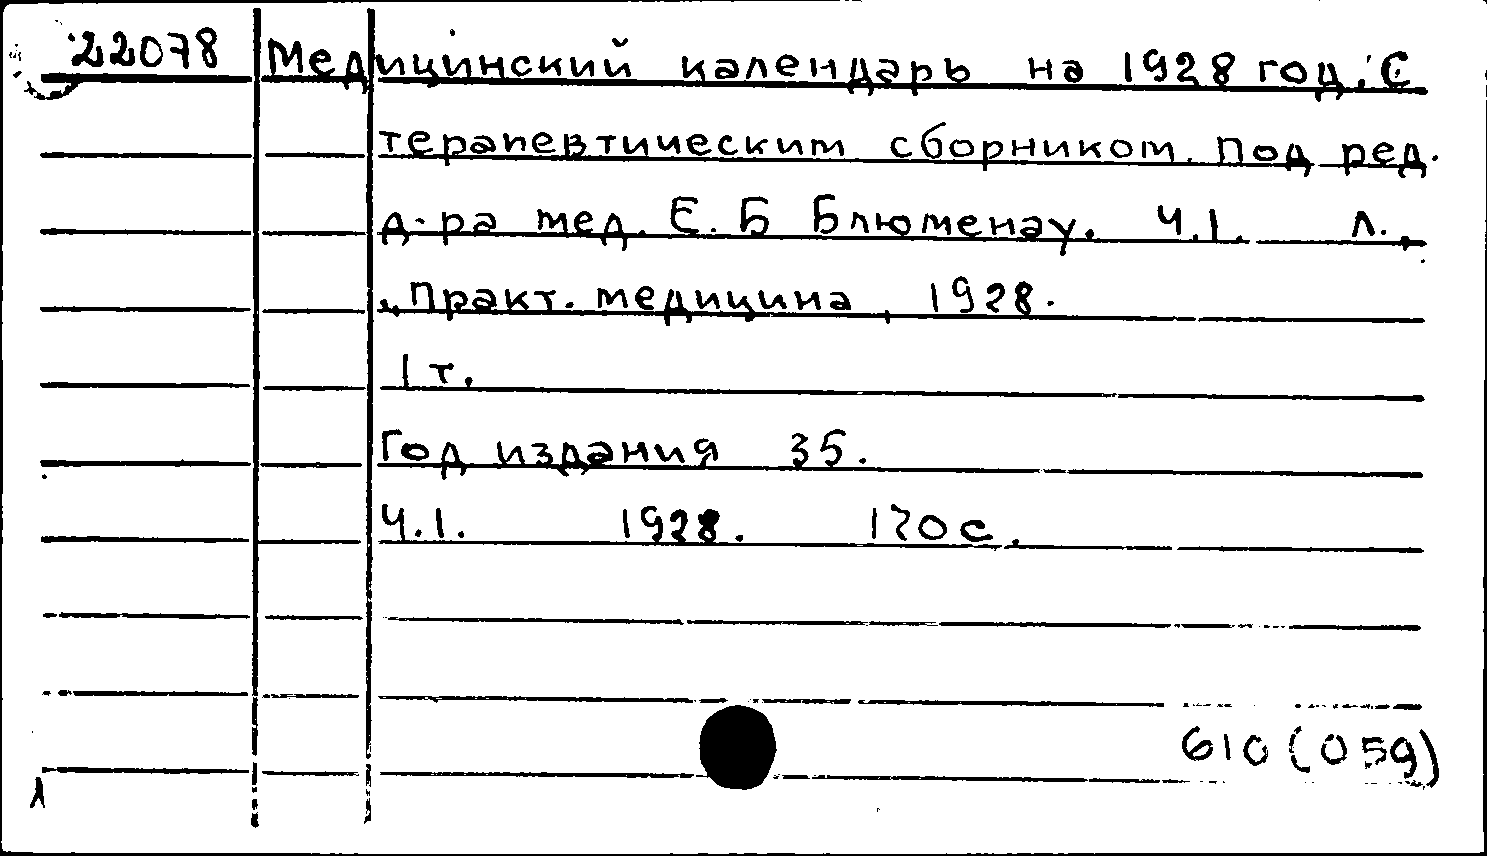 22078 Медицинский календарь на 1928 год. С
терапевтическим сборником. Под ред.
д-ра мед. Е. Б Блюменау. Ч.1. Л.,
„Практ. медицина, 1928.
1 т.
Год издания 35.
Ч.1. 1928. 170 с.
610 (059)